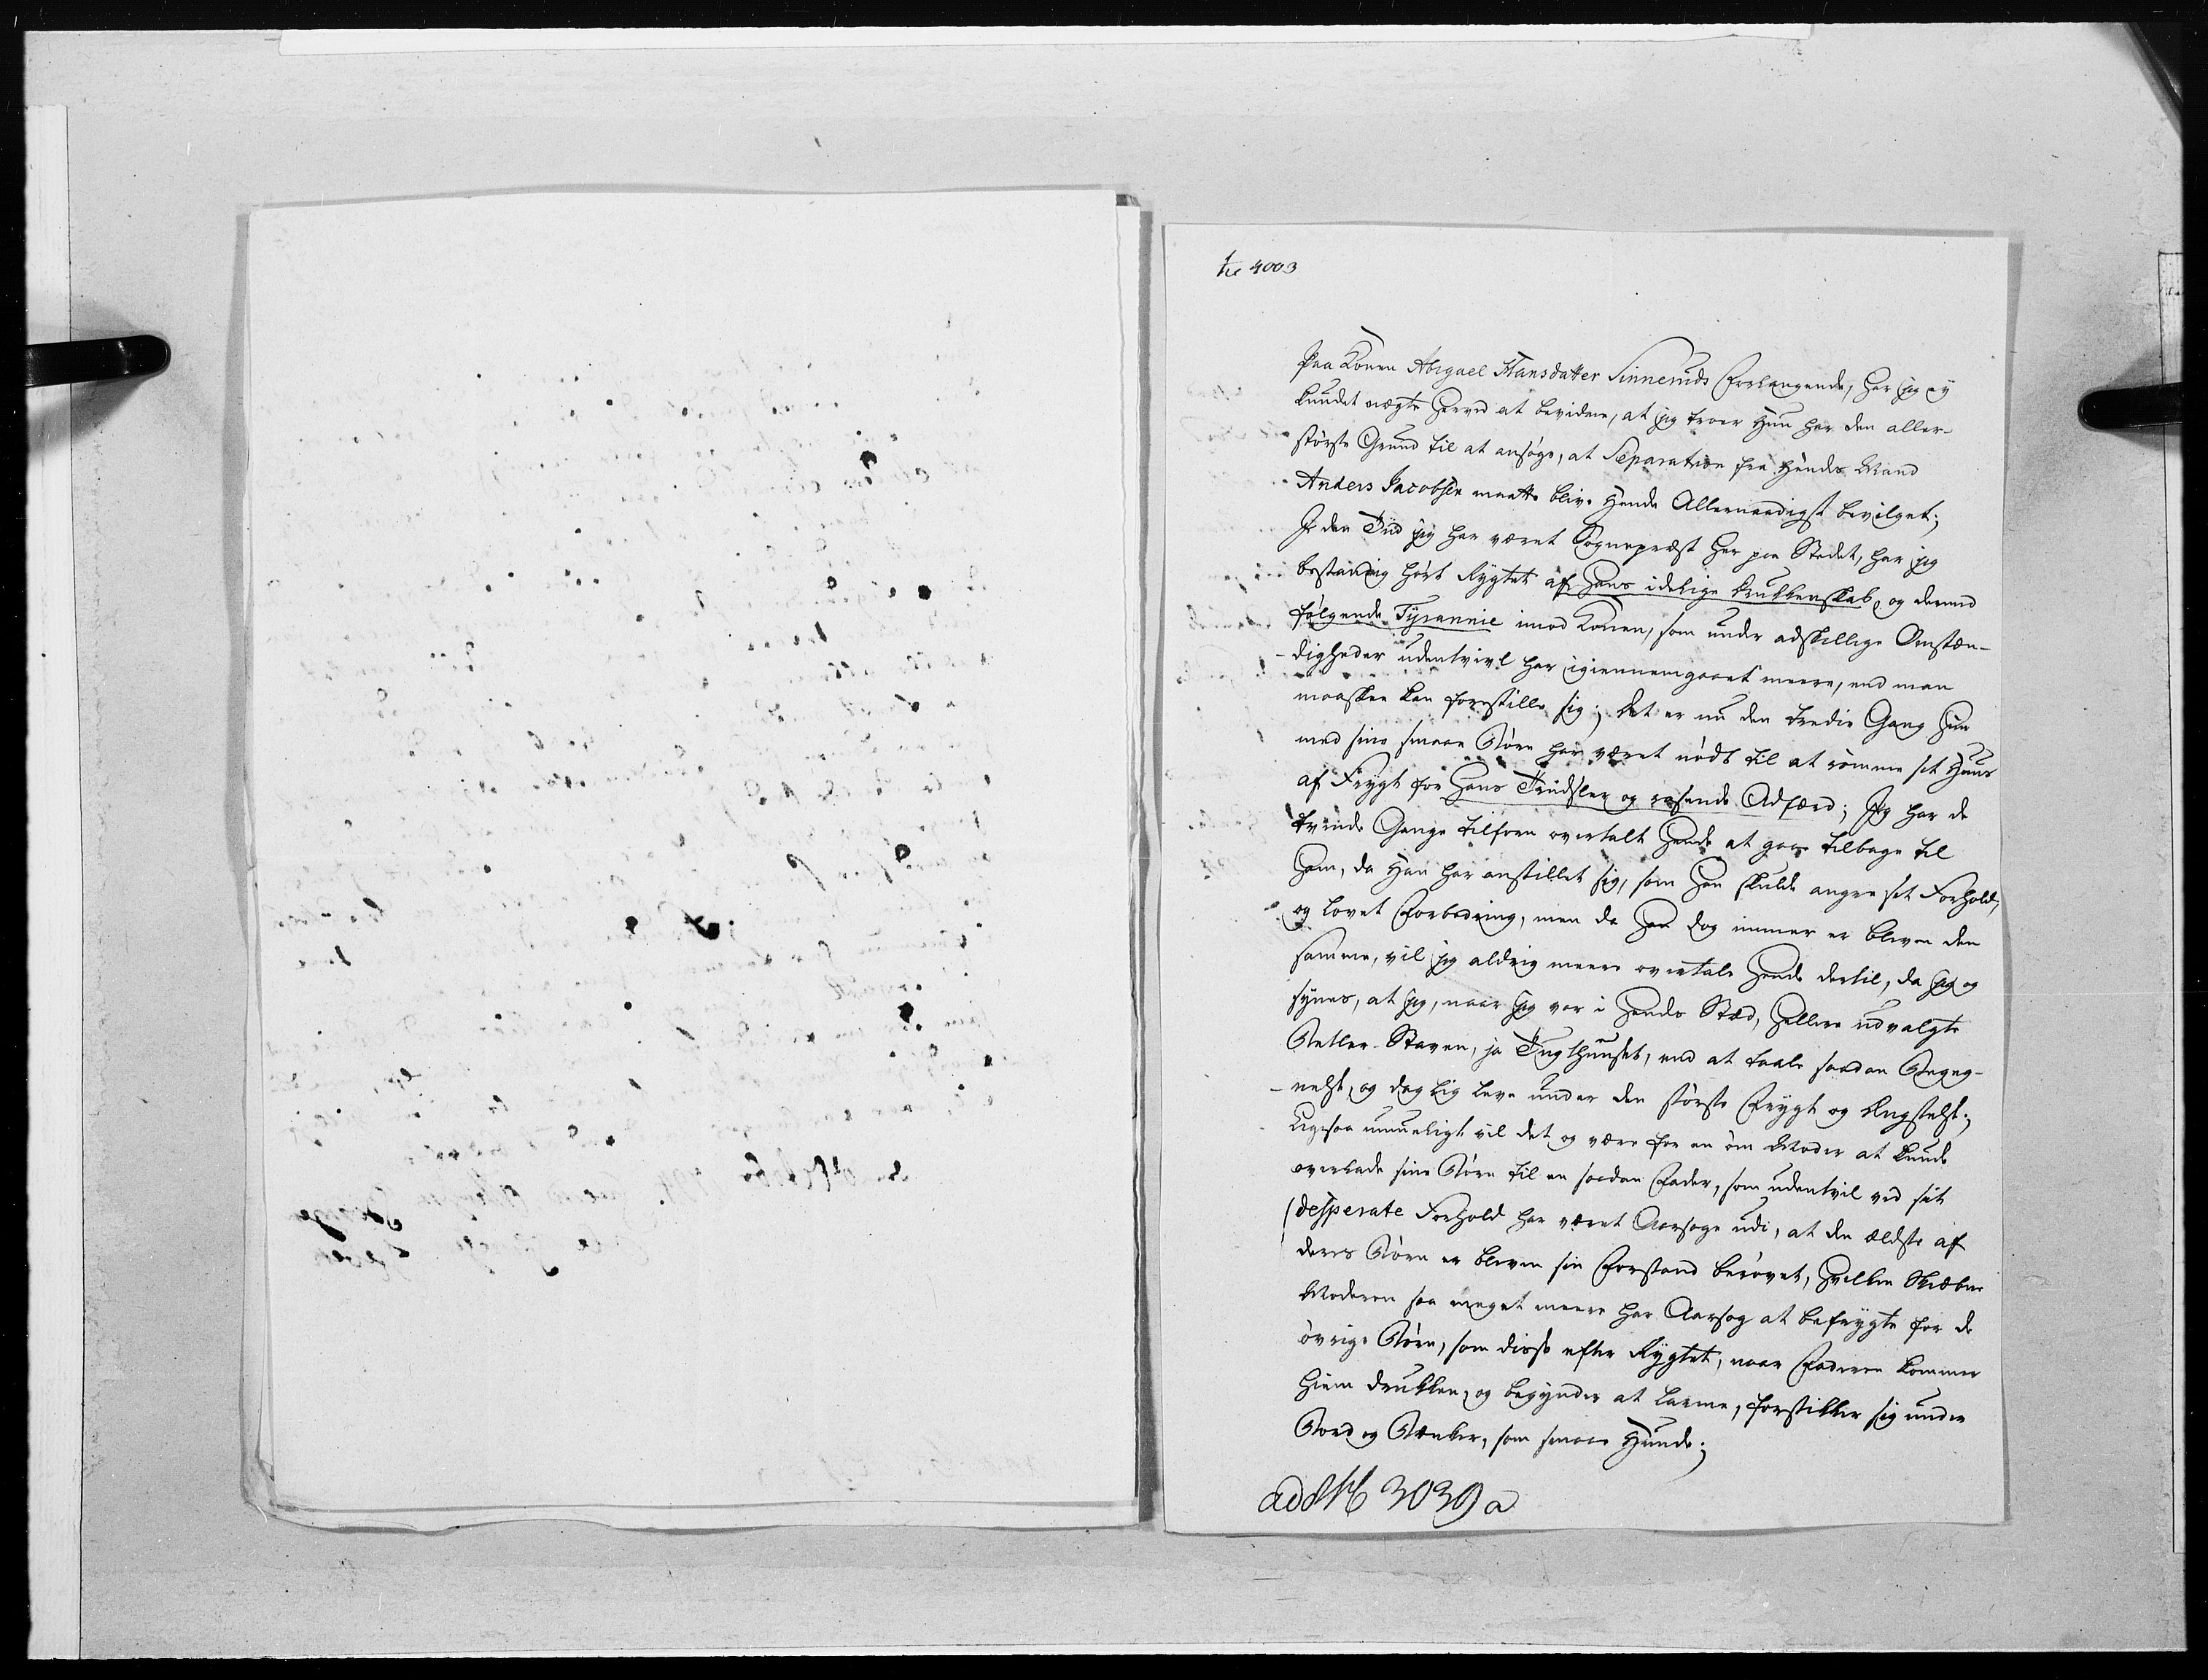 tu 4003
Paa Konen Abigael Hansdatter Sinneruds Forlangende, har jeg ey
kundet nægte herved at bevidne, at jeg troer Hun har den aller-
störste Grund til at ansöge, at Separation fra Hendes Mand
Anders Jacobsen maatte blive Hende Allernaadigst bevilget;
I den Tiid jeg har været Sognepræst her paa Stedet, har jeg
bestandig hört Rygtet af Hans idelige Drukkenskab, og dermed
fölgende Tyrannie imod Konen, som under adskillige Omstæn-
digheder udentvivl har igiennemgaaet meere, end man
maaskee kan forestille sig; Det er nu den tredie Gang Hun
med sine smaae Börn har været nödt til at römme sit Huus
af Frygt for Hans Trudsler og rasende Adfærd; Jeg har de
tvende Gange tilforn overtalt Hende at gaae tilbage til
Ham, da Han har anstillet sig, som Han skulde angre sit Forhold,
og lovet Forbedring, men da Han dog immer er bleven den
samme, vil jeg aldrig meere overtale Hende dertil, da jeg og
synes, at jeg, naar jeg var i Hendes Sted, hellere udvalgte
Betler-Staven, ja Tugthuuset, end at taale saadan Begeg-
nelse, og daglig leve under den störste Frygt og Ængstelse;
Ligesaa umueligt vil det og være for en öm Moder at kunde
overlade sine Börn til en saadan Fader, som udentvil ved sit
desperate Forhold har været Aarsage udi, at den ældste af
deres Börn er bleven sin Forstand berövet, hvilken Skiæbne
Moderen saa meget meere har Aarsag at befrygte for de
övrige Börn, som disse efter Rygtet, naar Faderen kommer
hiem drukken, og begynder at larme, forstikker sig under
Bord og Bænker, som smaae Hunde;
ad № 3039 a